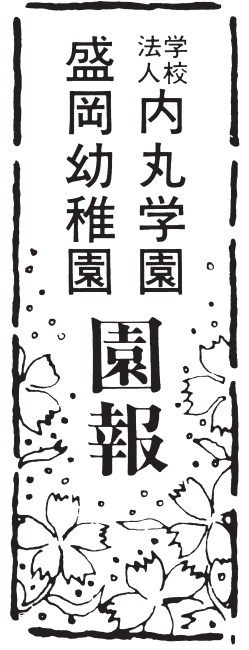 学校法人 内丸学園
盛岡幼稚園
園報